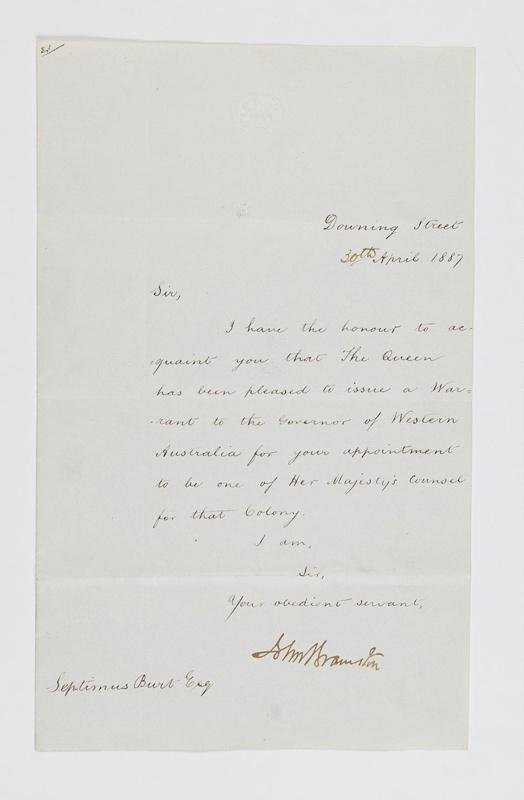 Downing Street
30th April 1887
Sir,
I have the honour to ac-
-quaint you that The Queen
has been pleased to issue a War=
-rant to the Governor of Western
Australia for your appointment
to be one of Her Majesty's Counsel
for that Colony.
I am,
Sir,
Your obedient servant,
John Bramston
Septimus Burt Esq